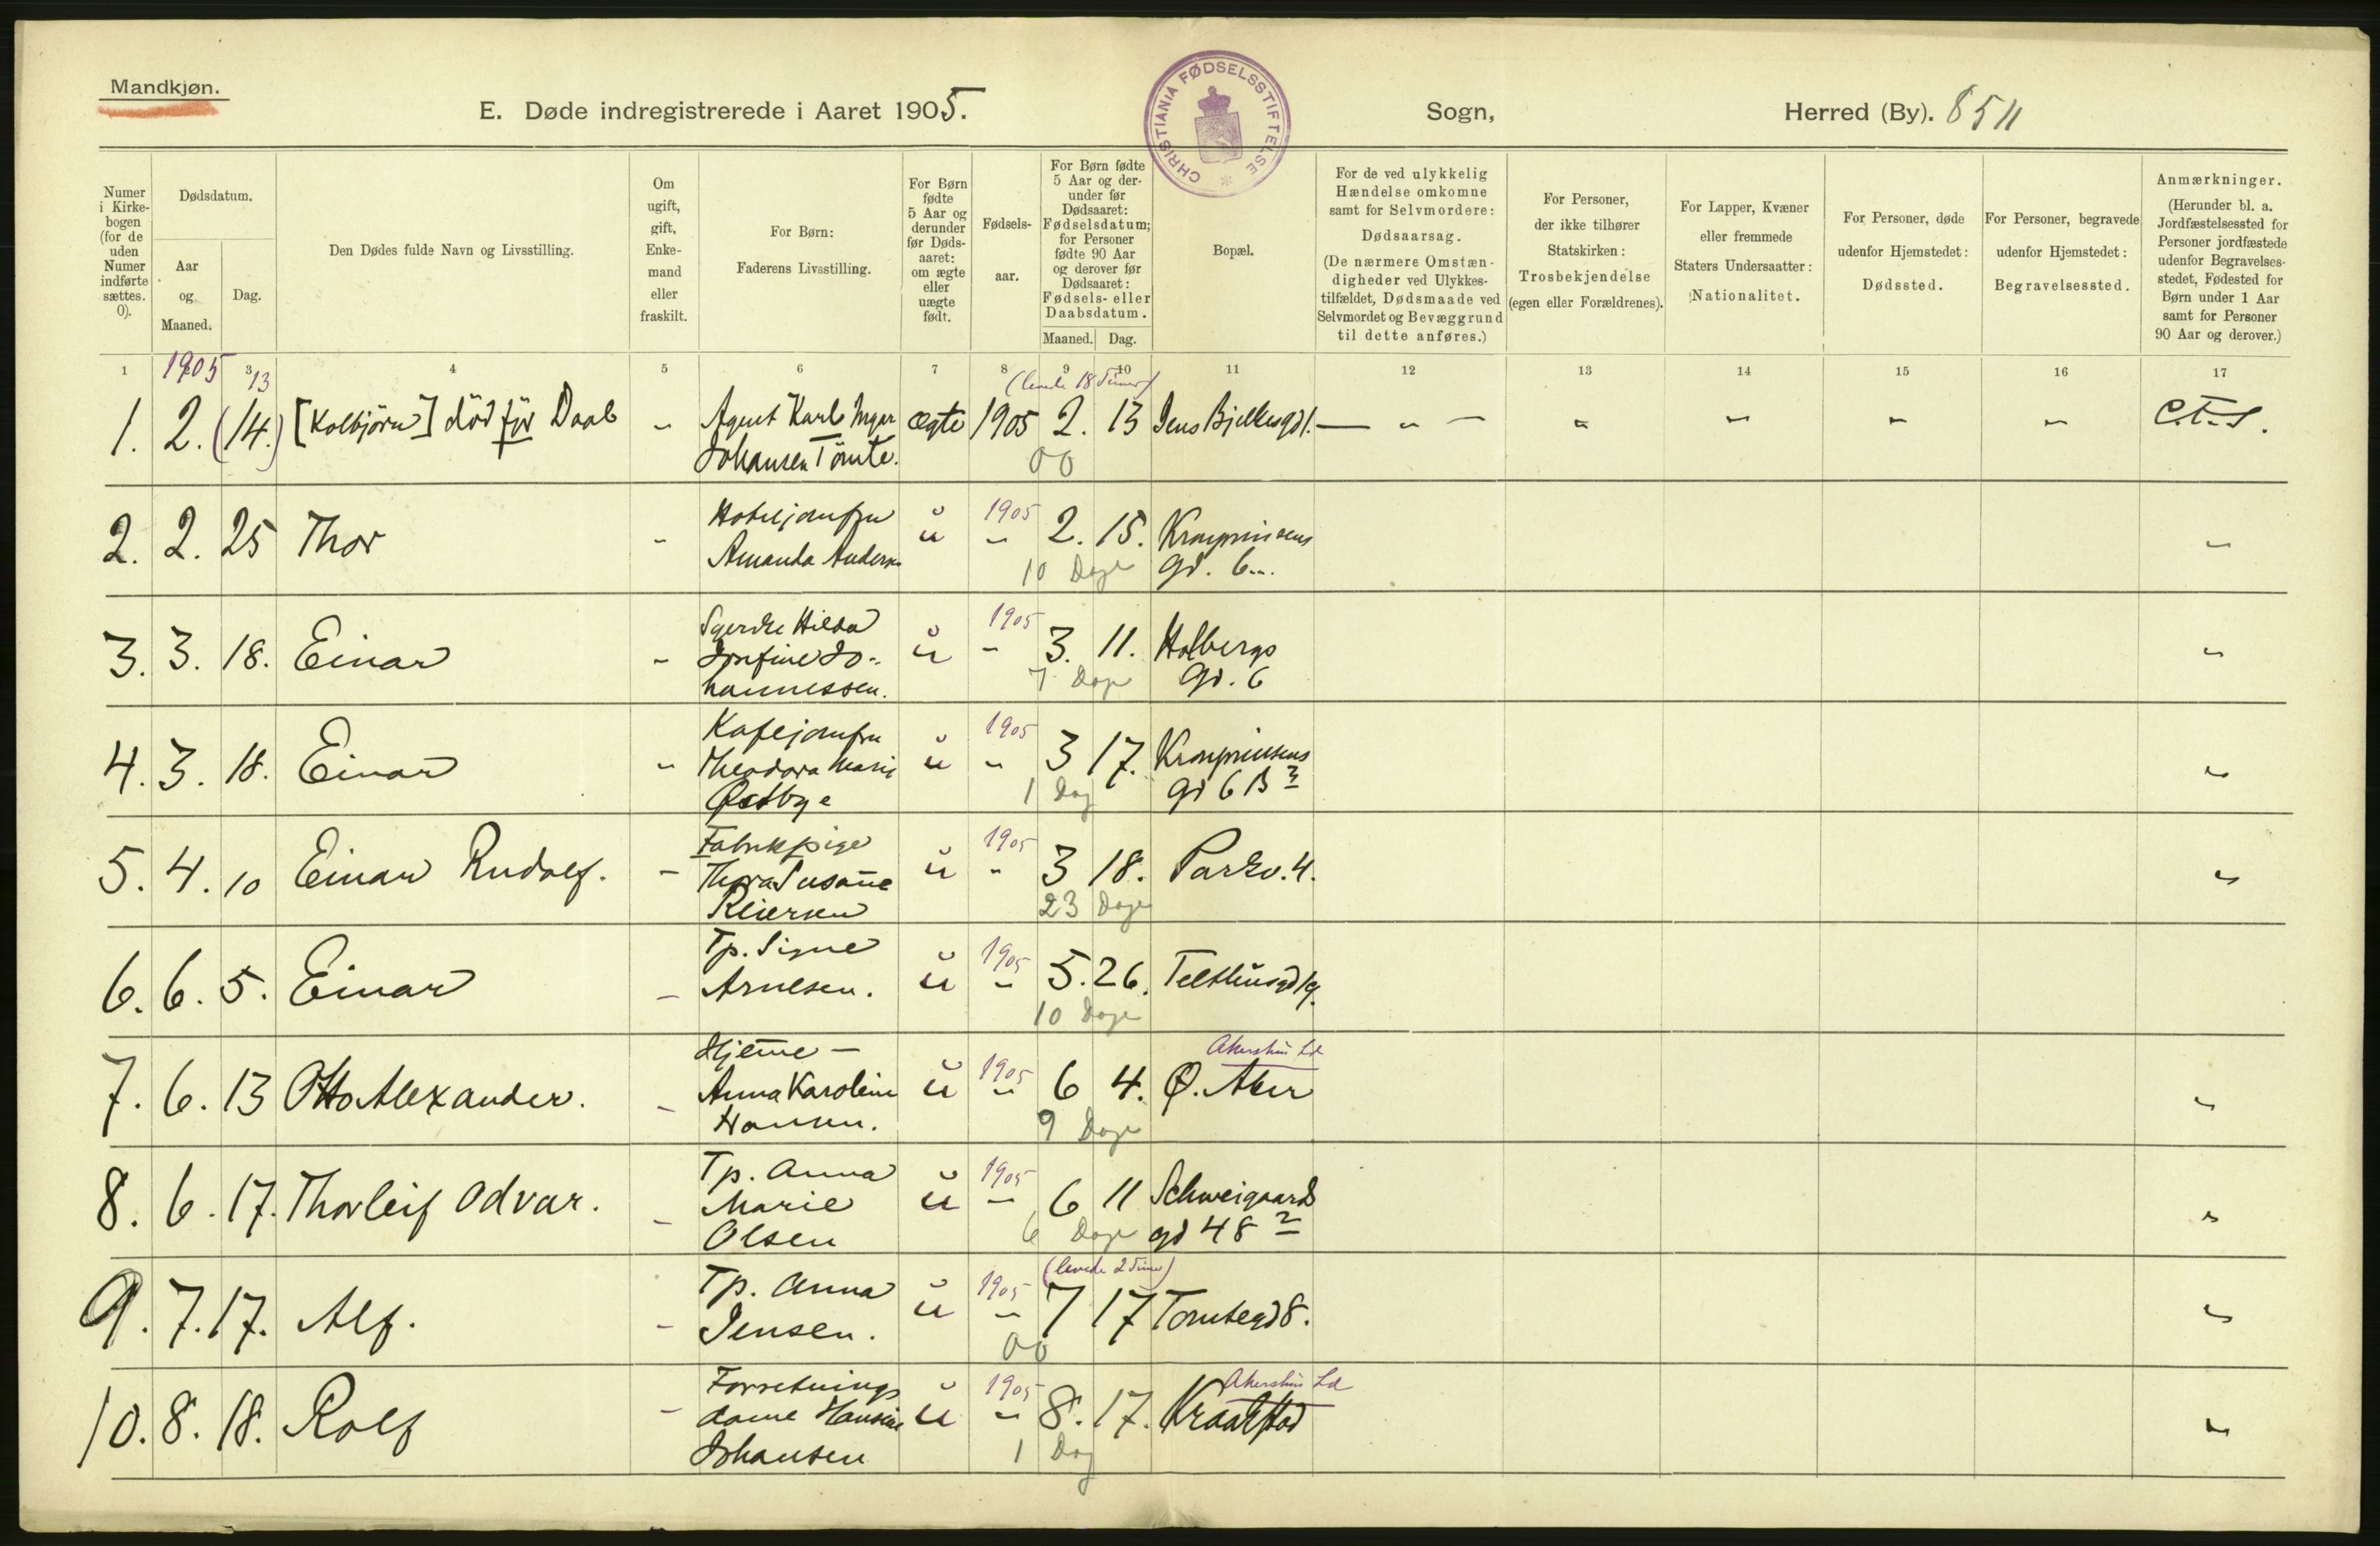 Mandkjøn.
E. Døde indregistrerede i Aaret 1905.
CHRISTIANIA FØDSELSSTIFTELSE
Sogn,
Herred (By). 8511
Numer i Kirke-bogen (for de uden Numer indførte sættes. 0).
Dødsdatum.
Aar og Maaned.
Dag.
Den Dødes fulde Navn og Livsstilling.
Om ugift, gift, Enke-mand eller fraskilt.
For Børn: Faderens Livsstilling.
For Børn fødte 5 Aar og derunder før Døds-aaret: om ægte eller uægte født.
Fødsels-aar.
For Børn fødte 5 Aar og der-under før Dødsaaret: Fødselsdatum; for Personer fødte 90 Aar og derover før Dødsaaret: Fødsels- eller Daabsdatum.
Maaned. Dag.
Bopæl.
For de ved ulykkelig Hændelse omkomne samt for Selvmordere: Dødsaarsag. (De nærmere Omstæn-digheder ved Ulykkes-tilfældet, Dødsmaade ved Selvmordet og Bevæggrund til dette anføres.)
For Personer, der ikke tilhører Statskirken: Trosbekjendelse (egen eller Forældrenes).
For Lapper, Kvæner eller fremmede Staters Undersaatter: Nationalitet.
For Personer, døde udenfor Hjemstedet: Dødssted.
For Personer, begravede udenfor Hjemstedet: Begravelsessted.
Anmærkninger. (Herunder bl. a. Jordfæstelsessted for Personer jordfæstede udenfor Begravelses-stedet, Fødested for Børn under 1 Aar samt for Personer 90 Aar og derover.)
1 3 4 5 6 7 8 9 10 11 12 13 14 15 16 17
1905 13 (levede 18 Timer)
1. 2. (14.) [Kolbjörn] död før Daab - Agent Karl Inger ægte 1905 2. 13 Jens Bjelkesgd 1. — " — " " " " C.F.S.
Johansen Tömte. 00
2. 2. 25 Thor - Hoteljomfru u 1905 " 2. 15. Kronprinsens "
Amanda Anders. 10 Dage gd. 6
3. 3. 18. Einar - Syerske Hilda u 1905 " 3. 11. Holbergs "
Josefine Jo- 7 Dage gd. 6
hannessen.
4. 3. 18. Einar " Kafejomfru u 1905 " 3 17. Kronprinsens "
Theodora Marie 1 Dag gd 6 B 3
Østbye
5. 4. 10 Einar Rudolf. - Fabrikpige u 1905 " 3 18. Parkv. 4. "
Thora Susanne 23 Dage
Reiersen
6. 6. 5. Einar - Tp. Signe u 1905 " 5. 26. Telthusgd 19.
Arnesen. 10 Dage
7. 6. 13 Otto Alexander. - Hjemme - u 1905 " 6 4. Akershus Ld "
Anna Karoline Ø. Aker
Hansen. 9 Dage
8. 6. 17. Thorleif Odvar. - Tp. Anna u 1905 " 6 11 Schweigaards "
Marie 6 Dage gd 48 2
Olsen
(levede 2 Timer)
9. 7. 17. Alf. - Tp. Anna u 1905 " 7 17 Tomtegd 8. "
Jensen. 00
10. 8. 18. Rolf - Forretnings u 1905 " 8. 17. Akershus Ld "
dame Hansine Kraakstad
Johansen 1 Dag